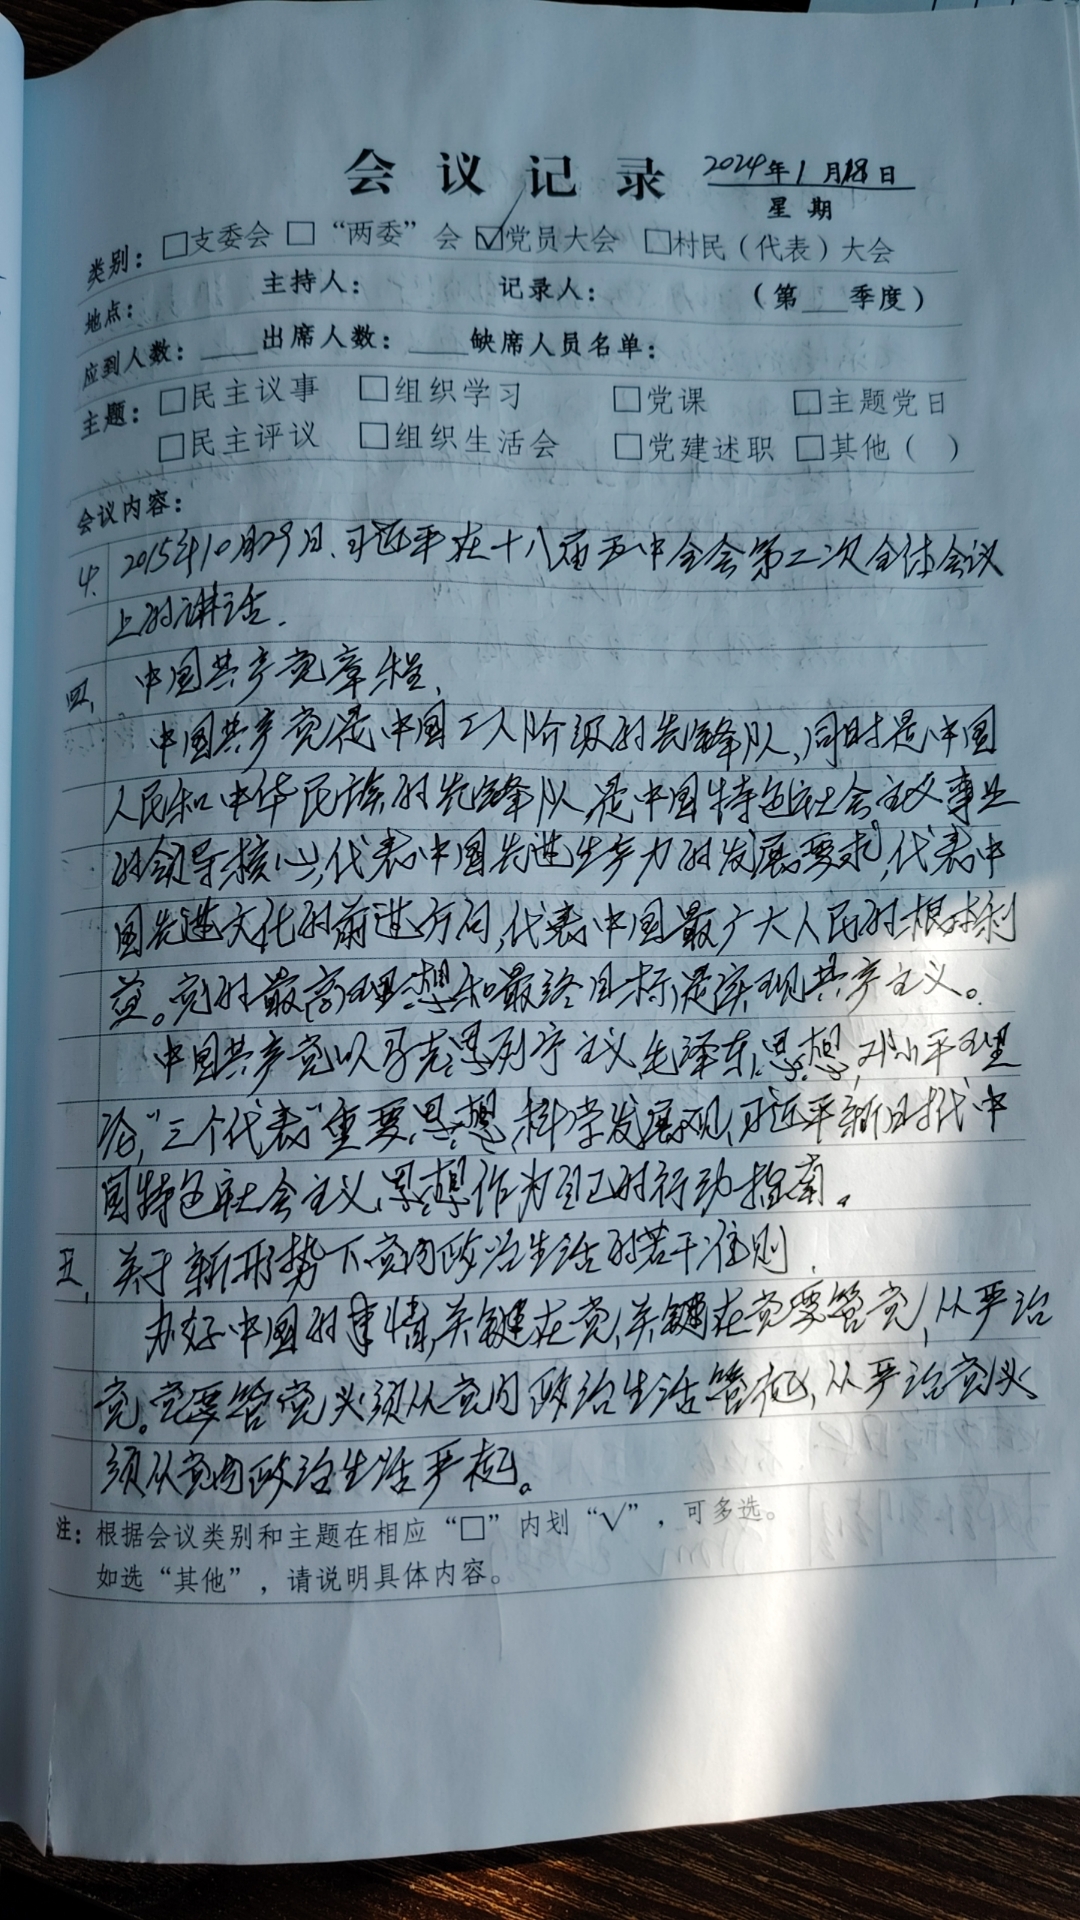 会议记录 2024年1月18日
星期
类别：□支委会 □“两委”会 ☑党员大会 □村民（代表）大会
地点： 主持人： 记录人： （第___季度）
应到人数：____出席人数：____缺席人员名单：
主题：□民主议事 □组织学习 □党课 □主题党日
□民主评议 □组织生活会 □党建述职 □其他（ ）
会议内容：
4. 2015年10月29日、习近平在十八届五中全会第二次全体会议
上的讲话.
四、中国共产党章程、
中国共产党是中国工人阶级的先锋队，同时是中国
人民和中华民族的先锋队，是中国特色社会主义事业
的领导核心，代表中国先进生产力的发展要求，代表中
国先进文化的前进方向，代表中国最广大人民的根本利
益。党的最高理想和最终目标是实现共产主义。
中国共产党以马克思列宁主义、毛泽东思想，邓小平理
论，“三个代表”重要思想，科学发展观，习近平新时代中
国特色社会主义思想作为自己的行动指南。
五、关于新形势下党内政治生活的若干准则.
办好中国的事情，关键在党，关键在党要管党，从严治
党。党要管党必须从党内政治生活管起，从严治党必
须从党内政治生活严起。
注：根据会议类别和主题在相应“□”内划“√”，可多选。
如选“其他”，请说明具体内容。